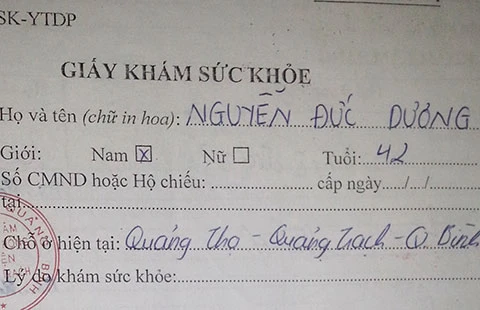 SK-YTDP
GIẤY KHÁM SỨC KHỎE
Họ và tên (chữ in hoa): NGUYỄN ĐỨC DƯƠNG
Giới: Nam ☒ Nữ ☐ Tuổi: 42
Số CMND hoặc Hộ chiếu: .................... cấp ngày..../..../....
tại:
Chỗ ở hiện tại: Quảng Thọ - Quảng Trạch - Q Bình
Lý do khám sức khỏe:
QUẢNG BÌNH